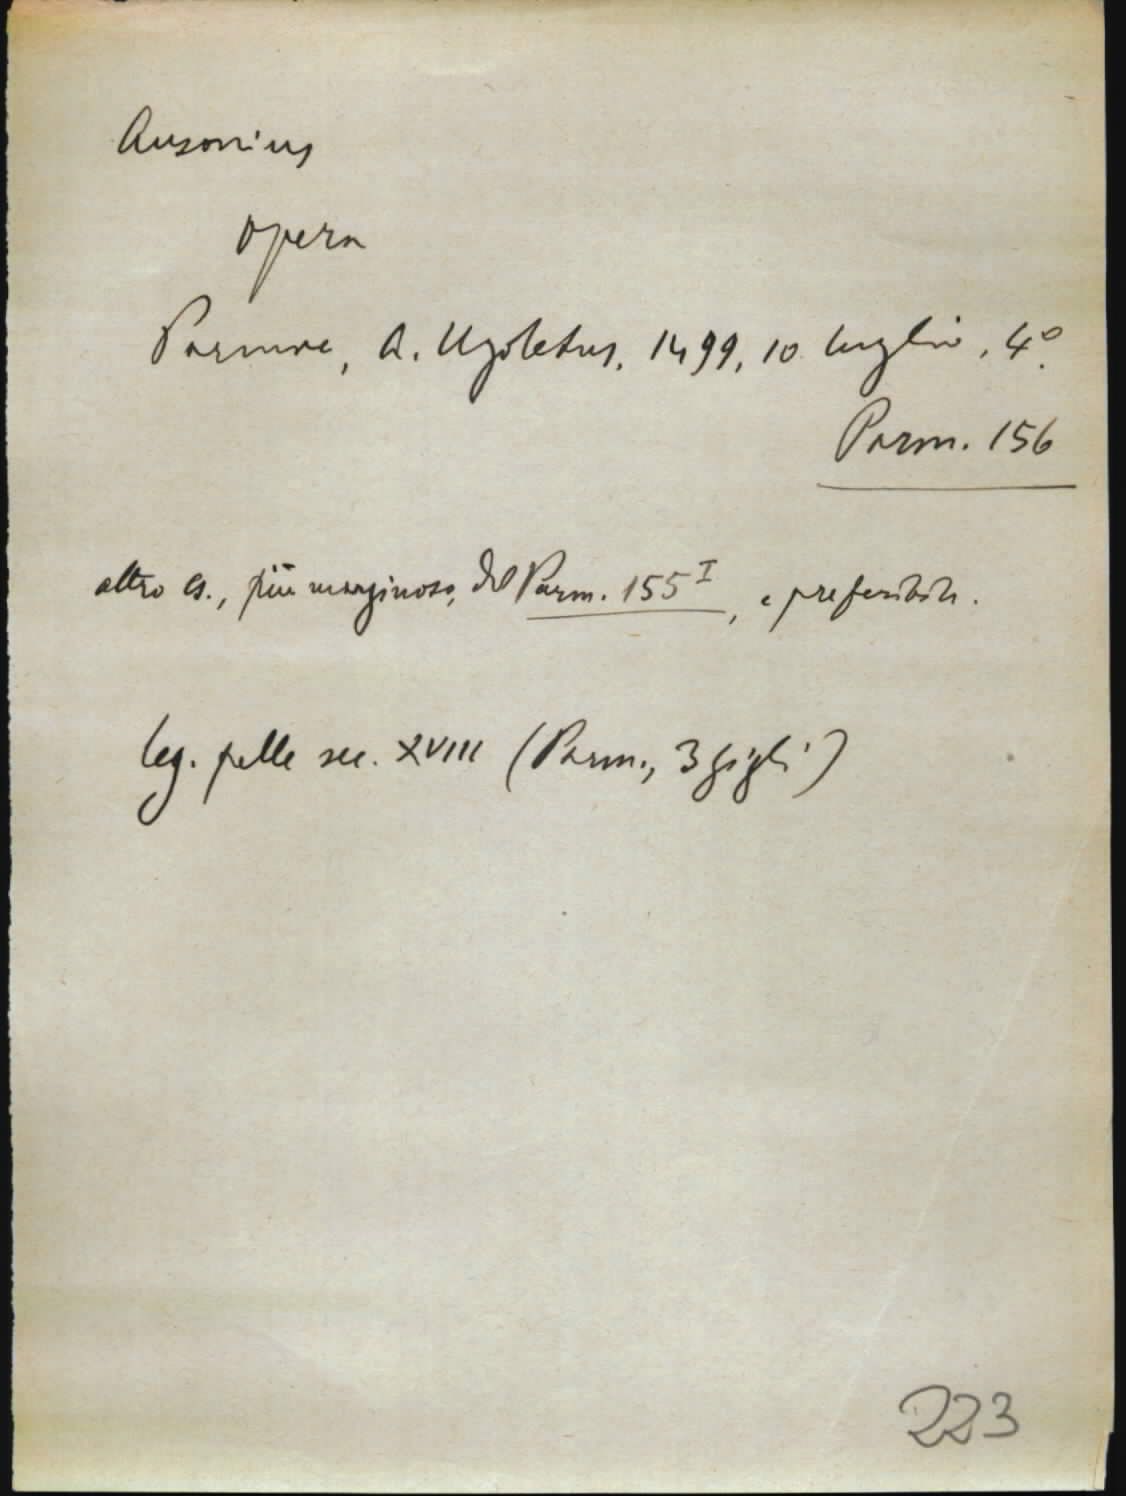 Ausonius
Opera
Parmae, A. Ugoletus, 1499, 10 luglio, 4°.
Parm. 156
altro es., più marginoso, del Parm. 155 I, e preferibile.
leg. pelle sec. XVIII (Parm., 3 gigli)
223